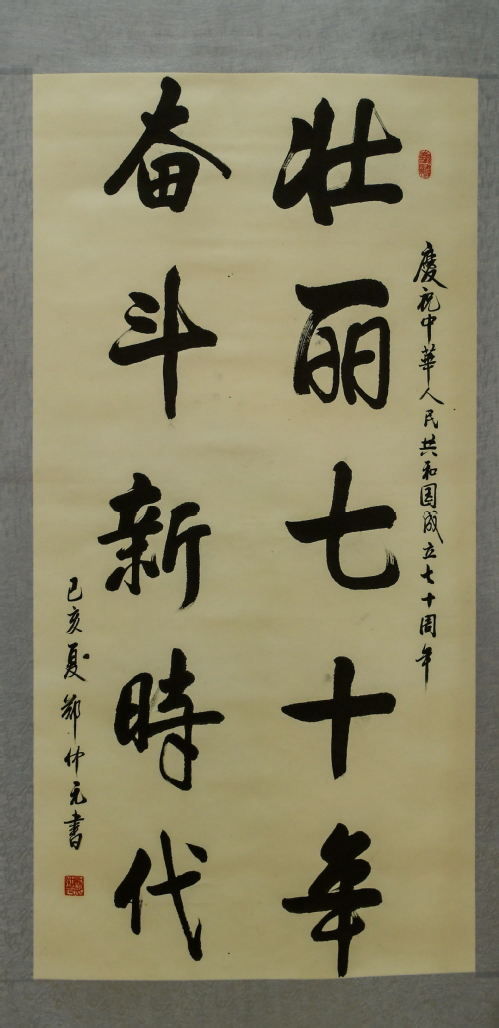 慶祝中華人民共和国成立七十周年
壮丽七十年
奋斗新時代
己亥夏郑仲元書